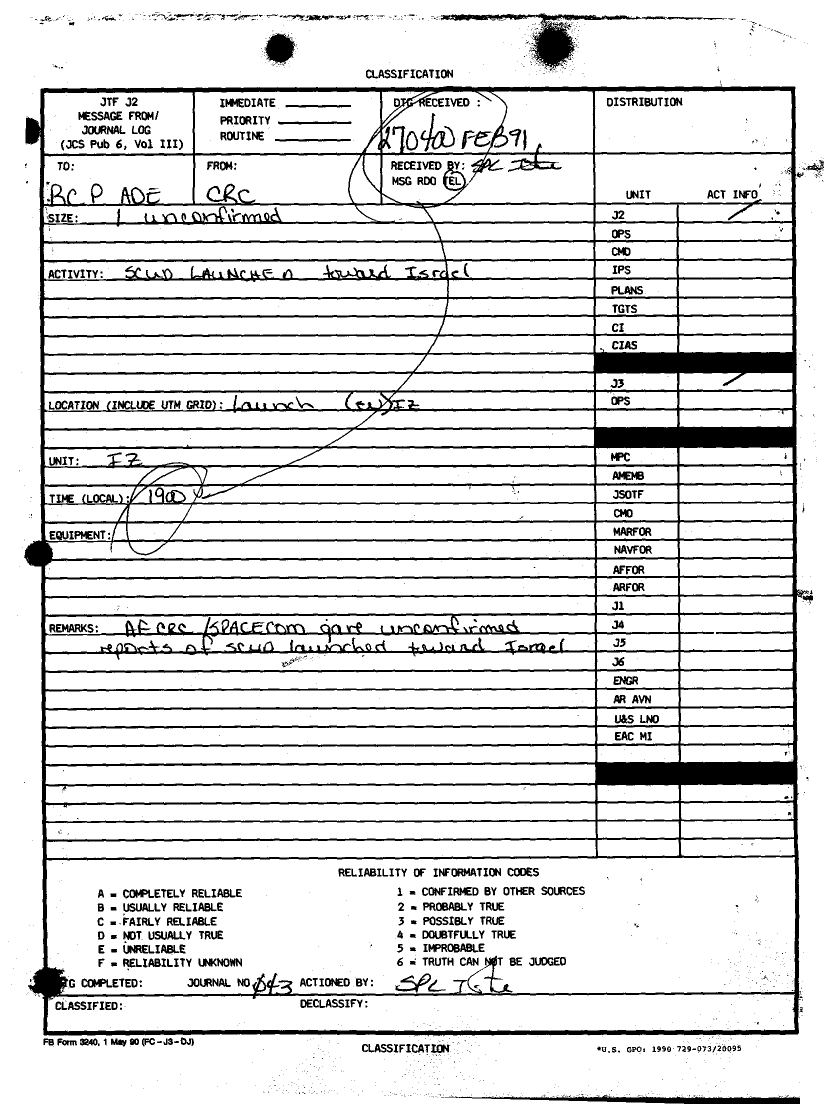 CLASSIFICATION
JTF J2
MESSAGE FROM/
JOURNAL LOG
(JCS Pub 6, Vol III)
IMMEDIATE
PRIORITY
ROUTINE
DTG RECEIVED :
270400 FEB 91
RECEIVED BY: SPC
MSG RDO TEL
DISTRIBUTION
TO:
RCP ADE
FROM:
CRC
UNIT ACT INFO
SIZE: 1 unconfirmed
ACTIVITY: SCUD LAUNCHED toward Israel
LOCATION (INCLUDE UTM GRID): Launch IZ
UNIT: IZ
TIME (LOCAL): 1900
EQUIPMENT:
REMARKS: AF CRC /SPACECOM gave unconfirmed
reports of SCUD launched toward Israel
J2
OPS
CMO
IPS
PLANS
TGTS
CI
CIAS
J3
OPS
MPC
AMEMB
JSOTF
CMO
MARFOR
NAVFOR
AFFOR
ARFOR
J1
J4
J5
J6
ENGR
AR AVN
U&S LNO
EAC MI
RELIABILITY OF INFORMATION CODES
A = COMPLETELY RELIABLE
B = USUALLY RELIABLE
C = FAIRLY RELIABLE
D = NOT USUALLY TRUE
E = UNRELIABLE
F = RELIABILITY UNKNOWN
1 = CONFIRMED BY OTHER SOURCES
2 = PROBABLY TRUE
3 = POSSIBLY TRUE
4 = DOUBTFULLY TRUE
5 = IMPROBABLE
6 = TRUTH CAN NOT BE JUDGED
COMPLETED: JOURNAL NO 043 ACTIONED BY: SPC
CLASSIFIED: DECLASSIFY:
FB Form 3240, 1 May 90 (FC-J3-DJ)
CLASSIFICATION
*U.S. GPO: 1990 729-073/20095